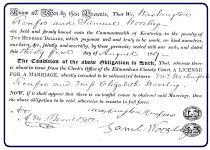 Know all Men By these Presents, That We, Washington
Renfro and Samuel Worley
are held and firmly bound unto the Commonwealth of Kentucky, in the full sum of
Two Hundred Dollars, which payment well and truly to be made, we bind ourselves,
our heirs, &c, jointly and severally, by these presents; sealed with our seals, and dated
thirty first day of August 18
The Condition of the above Obligation is Such, That, whereas there
is about to issue from the Clerk's Office of the Edmondson County Court, A LICENSE
FOR A MARRIAGE, shortly intended to be solemnized between Mr Washington
Renfro and Miss Elizabeth Worley
NOW, if it shall appear that there is no lawful cause to obstruct said Marriage, then
the above obligation to be void, otherwise to remain in full force.
Washington Renfro
Saml Worley